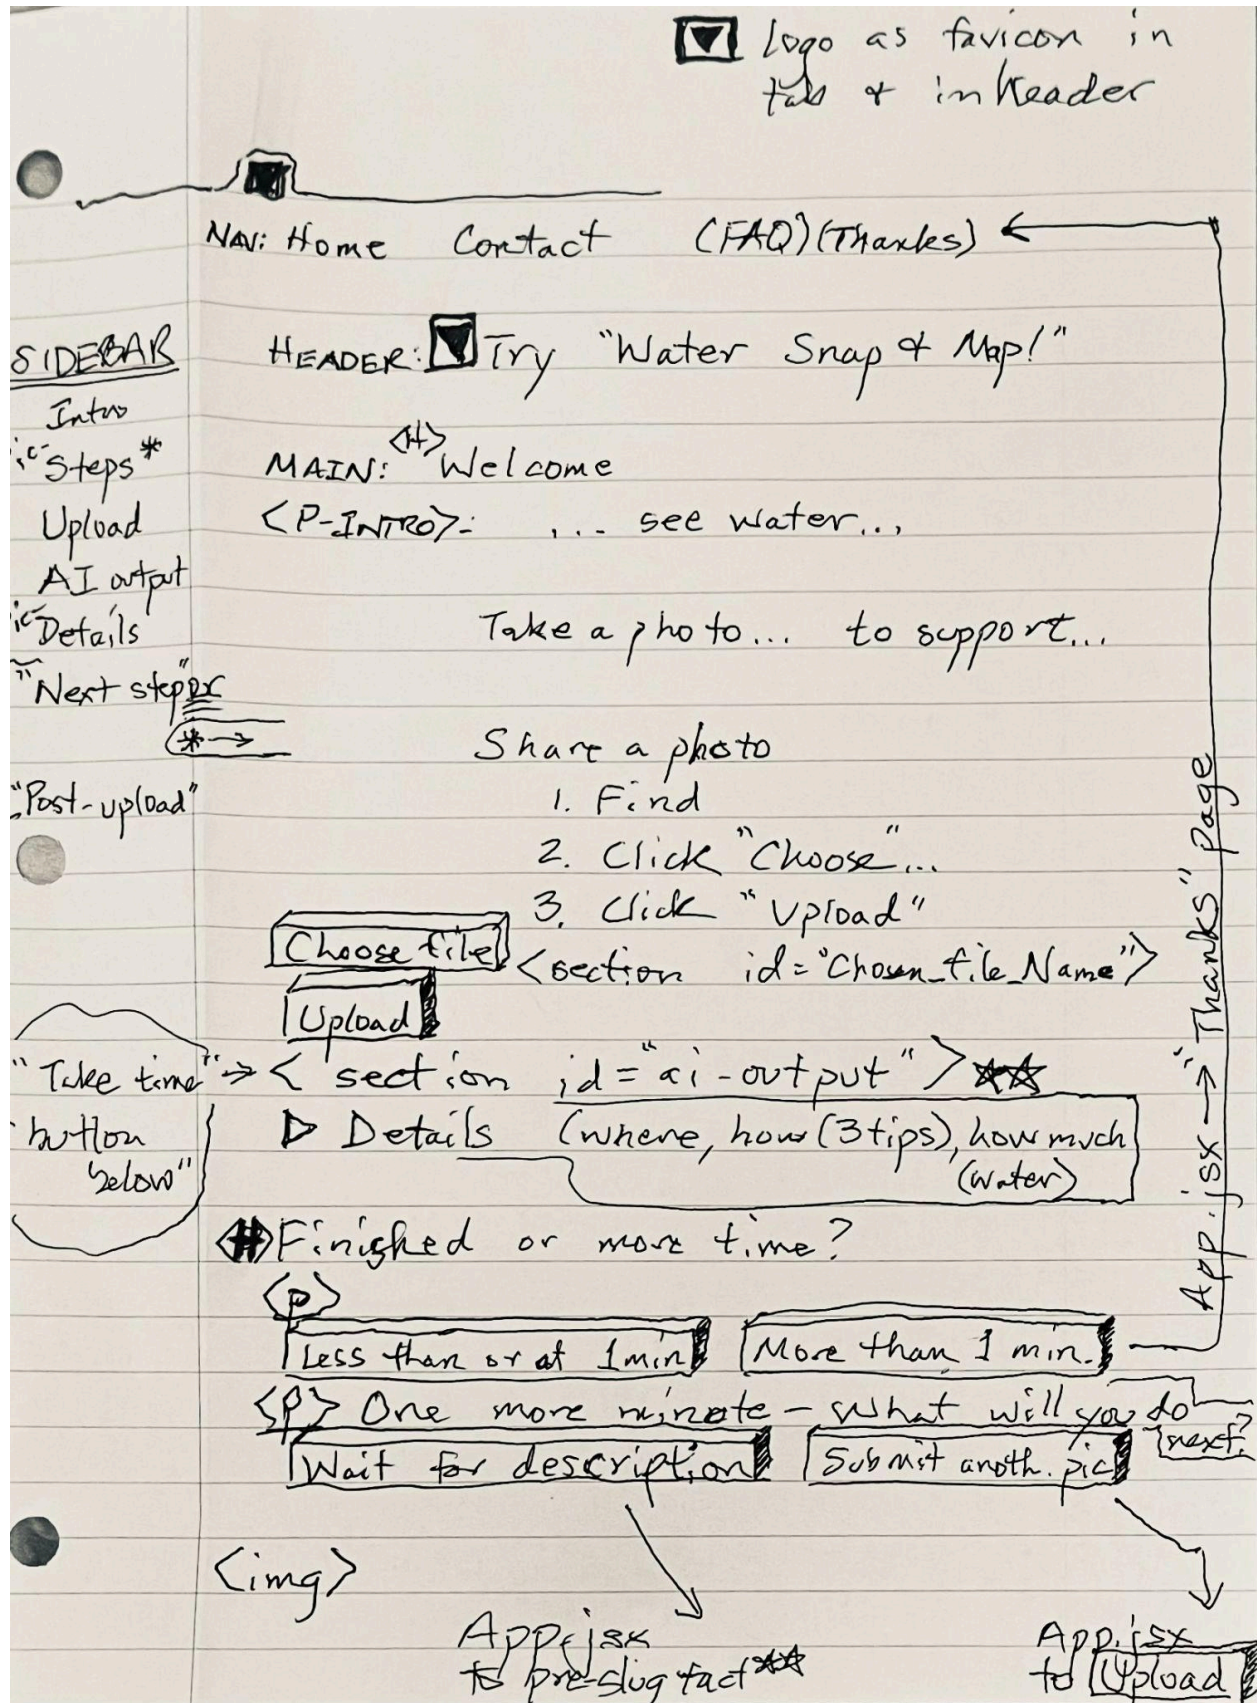 logo as favicon in
tab & in header
NAV: Home Contact (FAQ) (Thanks)
SIDEBAR
Intro
"Steps*
Upload
AI output
"Details
"Next step" or
*→
"Post-upload"
HEADER: Try "Water Snap & Map!"
<H>
MAIN: Welcome
<P-INTRO>: ... see water...
Take a photo... to support...
Share a photo
1. Find
2. Click "Choose"...
3. Click "Upload"
Choose file <section id="Chosen_file_Name">
Upload
"Take time" → < section id="ai-output" > ☆☆
button
below"
▷ Details (where, how (3 tips), how much
(water)
<H> Finished or more time?
<p>
Less than or at 1 min More than 1 min.
<p> One more minute - what will you do
next?
Wait for description Submit anoth. pic
<img>
App.jsx
to pre-slug fact ☆☆
App.jsx
to Upload
App.jsx → "Thanks" page